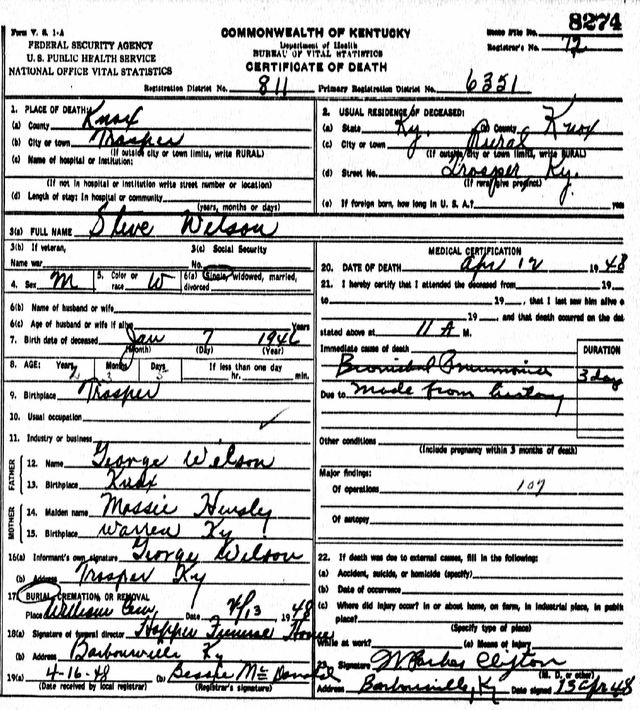 8274
Form V. S. 1-A
COMMONWEALTH OF KENTUCKY
FEDERAL SECURITY AGENCY
Department of Health
U. S. PUBLIC HEALTH SERVICE
BUREAU OF VITAL STATISTICS
Registrar's No. 72
NATIONAL OFFICE VITAL STATISTICS
CERTIFICATE OF DEATH
Registration District No. 811 Primary Registration District No. 6351
1. PLACE OF DEATH:
(a) County Knox
(b) City or town Trosper
(If outside city or town limits, write RURAL)
(c) Name of hospital or institution:
(If not in hospital or institution write street number or location)
(d) Length of stay: In hospital or community
(years, months or days)
2. USUAL RESIDENCE OF DECEASED:
(a) State Ky. (b) County Knox
(c) City or town Rural
(If outside city or town limits, write RURAL)
(d) Street No. Trosper Ky.
(If rural give precinct)
(e) If foreign born, how long in U. S. A.? years
3(a) FULL NAME Steve Wilson
3(b) If veteran,
Name war
3(c) Social Security
No.
4. Sex M 5. Color or race W 6(a) Single, widowed, married, divorced
6(b) Name of husband or wife
6(c) Age of husband or wife if alive Years
7. Birth date of deceased Jan 7 1946
(Month) (Day) (Year)
8. AGE: Years 2 Months 3 Days 5 If less than one day
hr. min.
9. Birthplace Trosper
10. Usual occupation
11. Industry or business
FATHER
12. Name George Wilson
13. Birthplace Knox
MOTHER
14. Maiden name Mossie Hensly
15. Birthplace Warren Ky
16(a) Informant's own signature George Wilson
(b) Address Trosper Ky
17. BURIAL, CREMATION, OR REMOVAL
Place Williams Cem Date 4/13 1948
18(a) Signature of funeral director Hopper Funeral Home
(b) Address Barbourville Ky
19(a) 4-16-48 (b) Bessie McDonald
(Date received by local registrar) (Registrar's signature)
MEDICAL CERTIFICATION
20. DATE OF DEATH Apr 12 1948
21. I hereby certify that I attended the deceased from 19
to 19 , that I last saw him alive
19 , and that death occurred on the dat
stated above at 11 A M.
Immediate cause of death DURATION
Bronchial Pneumonia 3 day
Due to made from history
Other conditions
(Include pregnancy within 3 months of death)
Major findings:
Of operations 107
Of autopsy
22. If death was due to external causes, fill in the following:
(a) Accident, suicide, or homicide (specify)
(b) Date of occurrence
(c) Where did injury occur? In or about home, on farm, in industrial place, in public
place?
(Specify type of place)
While at work? (e) Means of injury
23. Signature Clifton
(M. D. or other)
Address Barbourville, Ky Date signed 15 Apr 48